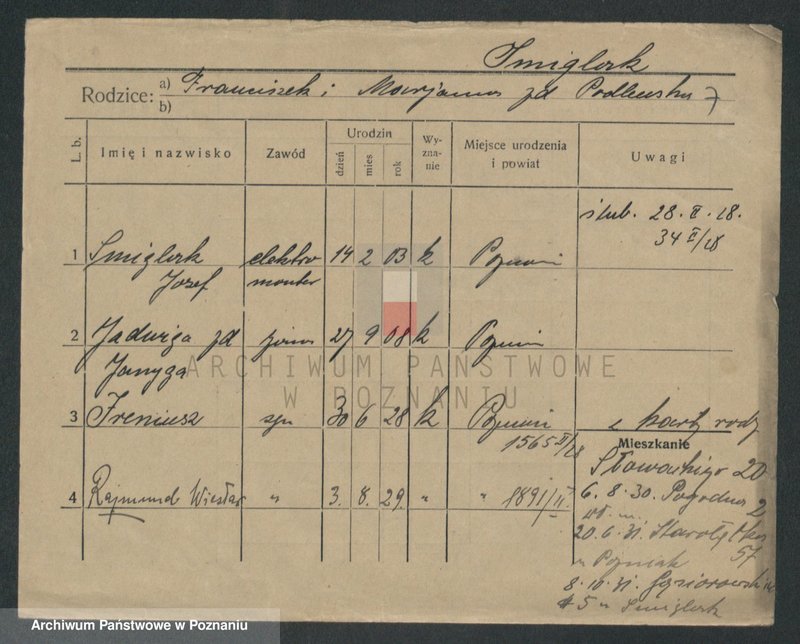 Smiglerk
Rodzice: a) Franciszek i Marjanna zd
b)
L. b. Imię i nazwisko Zawód Urodzin dzień mies rok Wy-zna-nie Miejsce urodzenia i powiat Uwagi
ślub. 28. II. 28.
34 II/28
1 Smiglerk elektro 14 2 03 k Poznań
Józef monter
2 Jadwiga zd żona 27 9 08 k Poznań
Janyga
3 Ireniusz syn 30 6 28 k Poznań
1565 II/28
4 Rajmund Wiesław " 3. 8. 29. " " 1891/II.
z karty rodz
Mieszkanie
Słowackiego 20
6. 8. 30. Pogodna 2
20. 6. 31.
57
8. 10. 31. Gąsiorowskich
5 u Smiglerk
ARCHIWUM PAŃSTWOWE
W POZNANIU
Archiwum Państwowe w Poznaniu